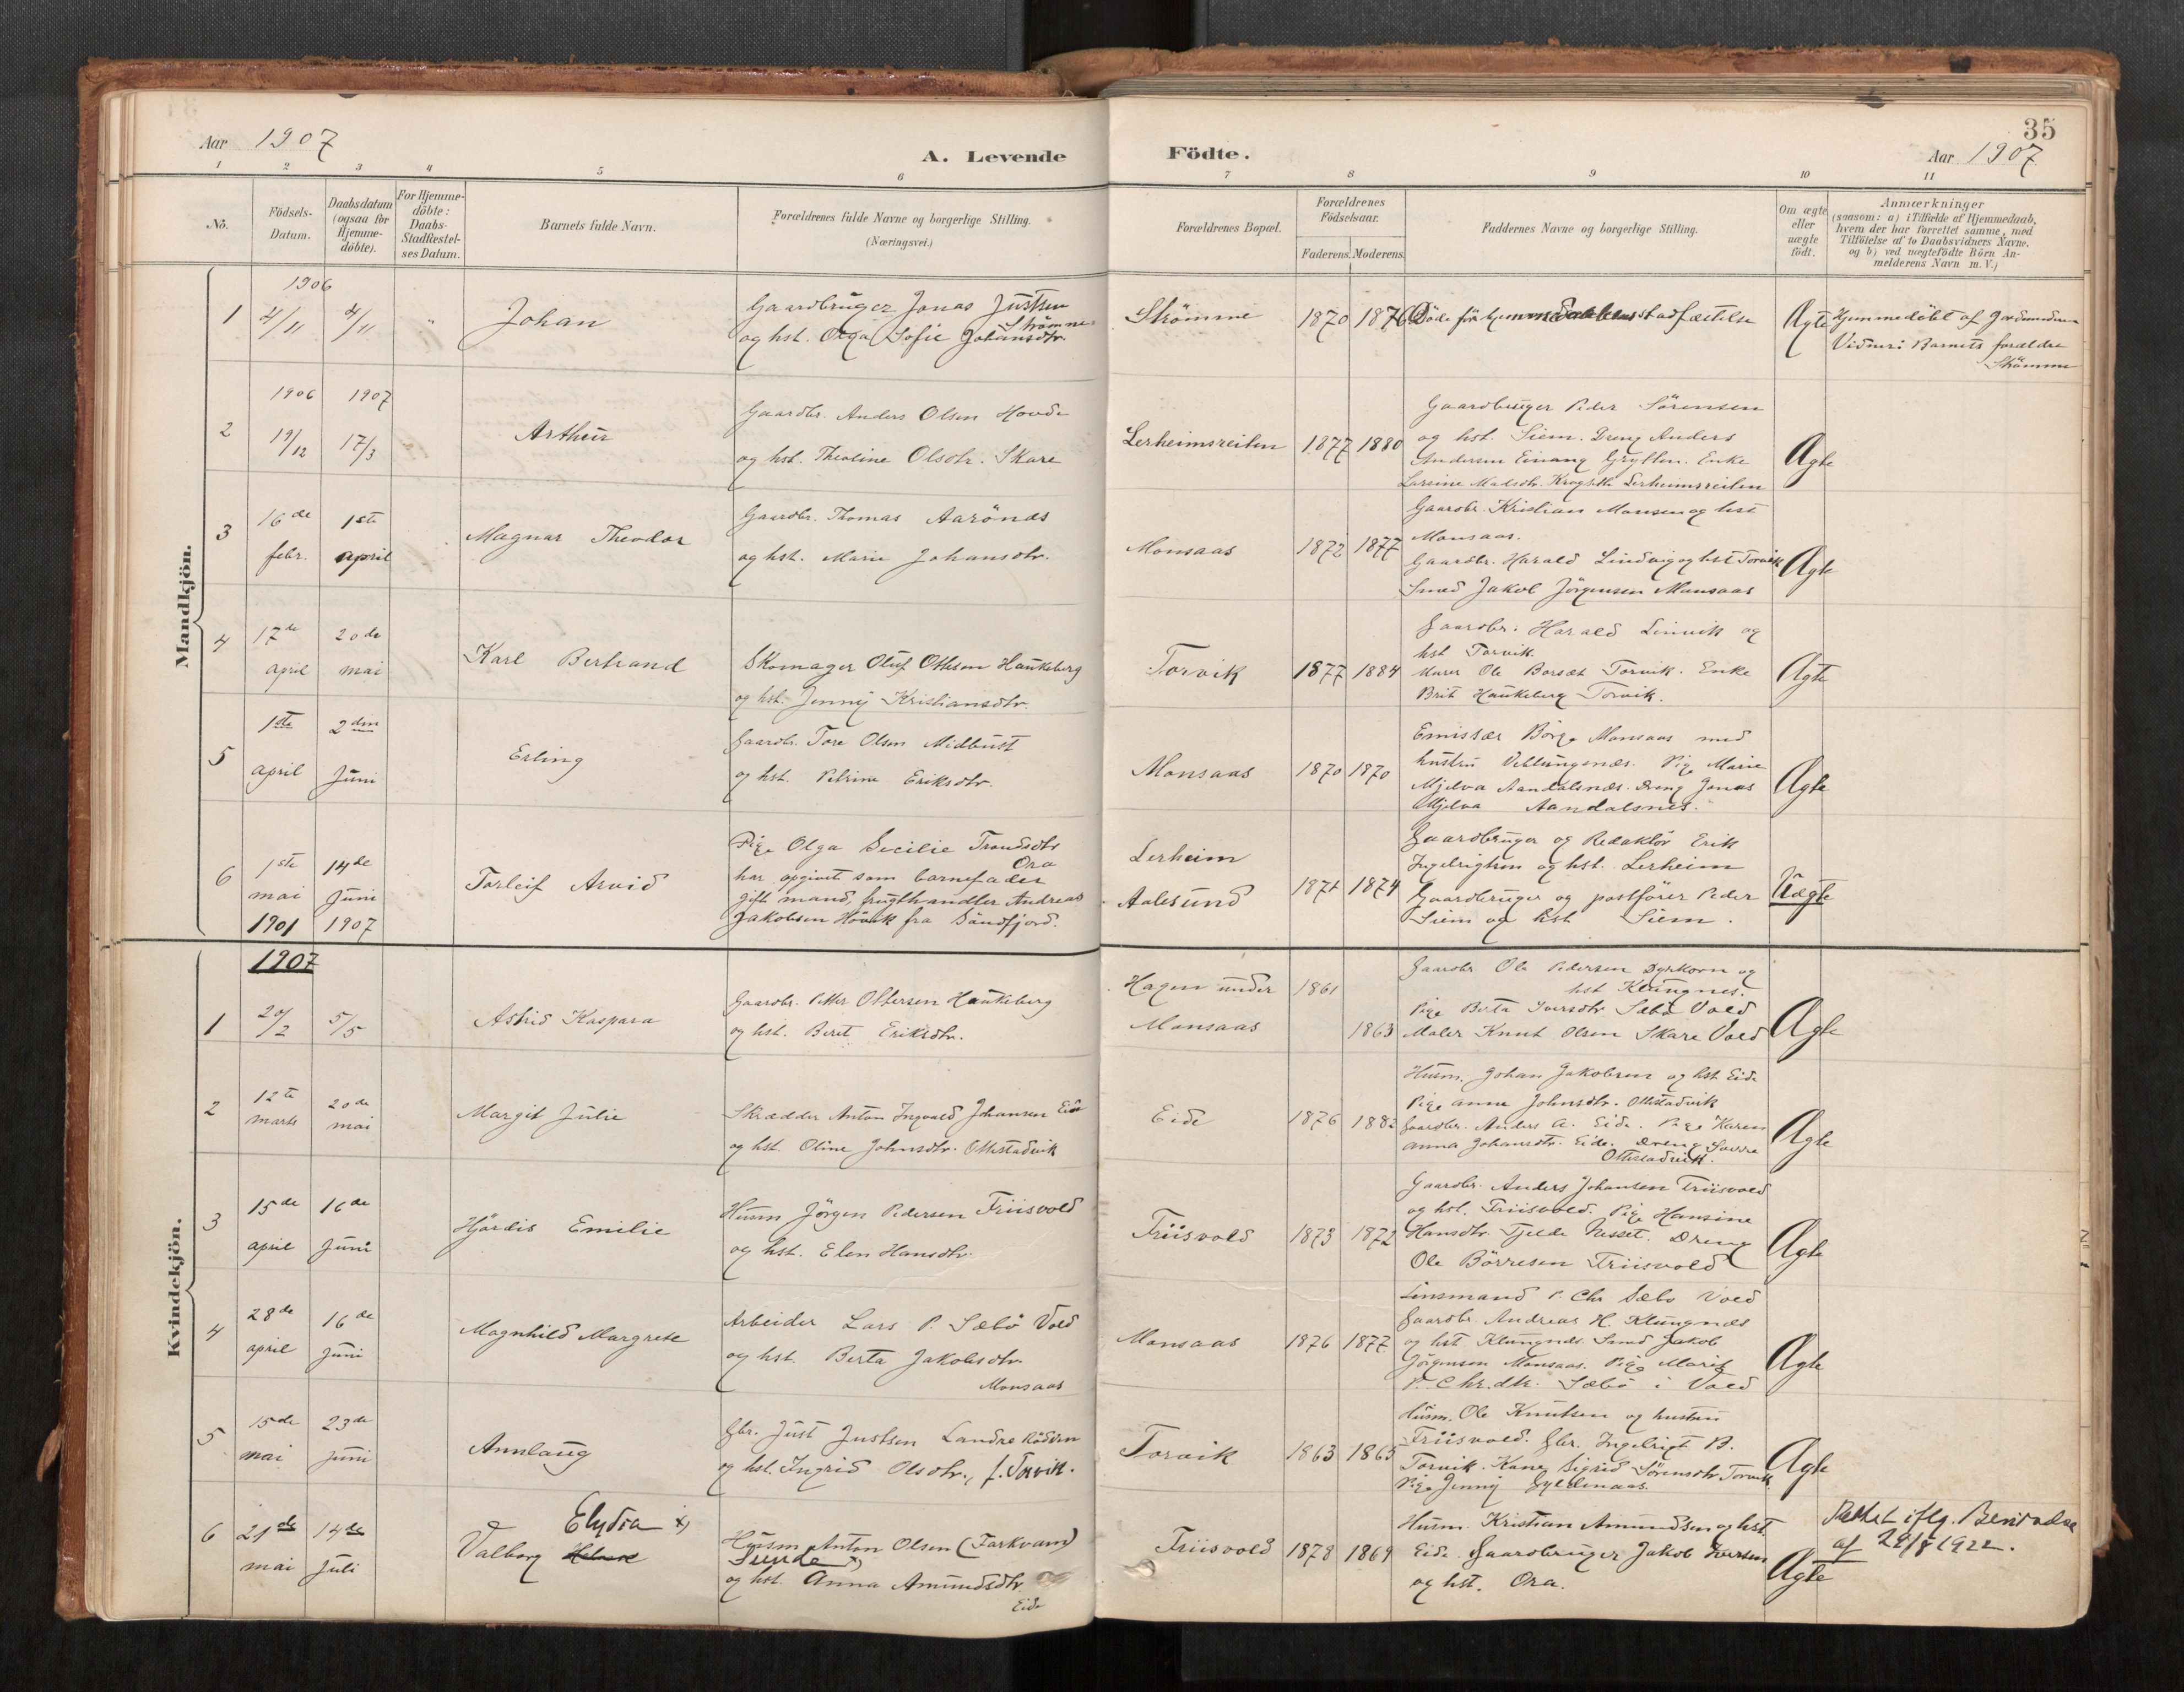 Aar 1907
A. Levende
Födte.
35
Aar 1907
1 2 3 4 5 6 7 8 9 10 11
No.
Födsels-
Datum.
Daabsdatum
(ogsaa for
Hjemme-
döbte).
For Hjemme-
döbte:
Daabs-
Stadfæstel-
ses Datum.
Barnets fulde Navn.
Forældrenes fulde Navne og borgerlige Stilling.
(Næringsvei.)
Forældrenes Bopæl.
Forældrenes
Födselsaar.
Faderens. Moderens.
Faddernes Navne og borgerlige Stilling.
Om ægte
eller
uægte
födt.
Anmærkninger
(saasom: a) i Tilfælde af Hjemmedaab,
hvem der har forrettet samme, med
Tilföielse af to Daabsvidners Navne.
og b) ved uægtefödte Börn An-
melderens Navn m. V.)
Mandkjön.
1906
1 4/11 4/11 Johan
Gaardbruger Jonas Justsen
Strømme
og hst. Olga Sofie Johansdtr.
Strömme 1870 1876
Döde för hjemmedaabens stadfæstelse
Ægte
Hjemmedöbt af Jordmoderen
Vidner: Barnets forældre
Strömme
1906 1907
2 19/12 17/3 Arthur
Gaardbr. Anders Olsen Hovde
og hst. Theoline Olsdtr. Skare
Lerheimsreiten 1877 1880
Gaardbruger Peder Sörensen
og hst. Siem. Dreng Anders
Andersen Einang Grytten. Enke
Lerheimsreiten
Ægte
3 16de febr. 1ste april Magnar Theodor
Gaardbr. Thomas Aarönæs
og hst. Marie Johansdtr.
Monsaas 1872 1877
Gaardbr. Kristian Monsen og hst
Monsaas.
Gaardbr. Harald Lindvig og hst Torvik
Smed Jakob Jörgensen Monsaas
Ægte
4 17de april 20de mai Karl Bertrand
Skomager Oluf Ottesen Haukeberg
og hst. Jenny Kristiansdtr.
Torvik 1877 1884
Gaardbr. Harald Linvik og
hst Torvik.
Murer Ole Borsæt Torvik. Enke
Brit Haukeberg Torvik.
Ægte
5 1ste april 2den Juni Erling
Gaardbr. Tore Olsen Midbust
og hst. Petrine Eriksdtr.
Monsaas 1870 1870
Emissær Börge Monsaas med
hustru Veblungsnæs. Pige Marie
Mjelva Aandalsnæs. Dreng Jonas
Mjelva Aandalsnes.
Ægte
6 1ste mai 1901 14de Juni 1907 Torleif Arvid
Pige Olga Secilie Trondsdtr
Ora
har opgivet som barnefader
gift mand, frugthandler Andreas
Jakobsen Hövik fra Söndfjord.
Lerheim
Aalesund 1871 1874
Gaardbruger og Redaktör Erik
Ingebrigtsen og hst. Lerheim
Gaardbruger og postförer Peder
Siem og hst Siem.
Uægte
Kvindekjön.
1907
1 20/2 5/5 Astrid Kaspara
Gaardbr. Petter Ottersen Haukeberg
og hst. Beret Eriksdtr.
Hagen under
Monsaas 1861 1863
Gaardbr Ole Pedersen Dyrkorn og
hst Klungnes.
Pige Berta Iversdtr Sæbö Vold
Maler Knut Olsen Skare Vold
Ægte
2 12te marts 20de mai Margit Julie
Skrædder Anton Ingvald Johansen Eide
og hst. Oline Johnsdtr. Ottestadvik
Eide 1876 1882
Husm. Johan Jakobsen og hst Eide
Pige Anna Johnsdtr. Ottestadvik
Gaardbr. Anders A. Eide. Pige Karen
Anna Johansdtr. Eide. Dreng Sverre
Ottestadvik.
Ægte
3 15de april 16de Juni Hjördis Emilie
Husm Jörgen Pedersen Friisvold
og hst. Elen Hansdtr.
Friisvold 1873 1872
Gaardbr. Anders Johansen Friisvold
og hst. Friisvold. Pige Hansine
Hansdtr. Tjelde Nesset. Dreng
Ole Börresen Friisvold
Ægte
4 28de april 16de Juni Magnhild Margrete
Arbeider Lars P. Sæbö Vold
og hst. Berta Jakobsdtr
Monsaas
Monsaas 1876 1877
Linsmand P. Chr Sæbö Vold
Gaardbr. Andreas H. Klungnæs
og hst Klungnæs. Smed Jakob
Jörgensen Monsaas. Pige Marit
P. Chr.dtr. Sæbö i Vold
Ægte
5 15de mai 23de Juni Annlaug
Gbr. Just Justsen Landre Rödven
og hst. Ingrid Olsdtr., f. Torvik.
Torvik 1863 1865
Husm. Ole Knutsen og hustru
Friisvold. Gbr. Ingebrigt B.
Torvik. Kone Sigrid Sörensdtr Torvik
Pige Jenny Gyldenaas.
Ægte
6 21de mai 14de Juli
Elydia x)
Valborg Helene
Husm Anton Olsen (Tarkvam)
Sunde x)
og hst. Anna Amundsdtr.
Eide
Friisvold 1878 1869
Husm. Kristian Amundsen og hst
Eide. Gaardbruger Jakob Iversen
og hst. Ora.
Ægte
Rettet iflg. Beediadse
af 29/8 1922.